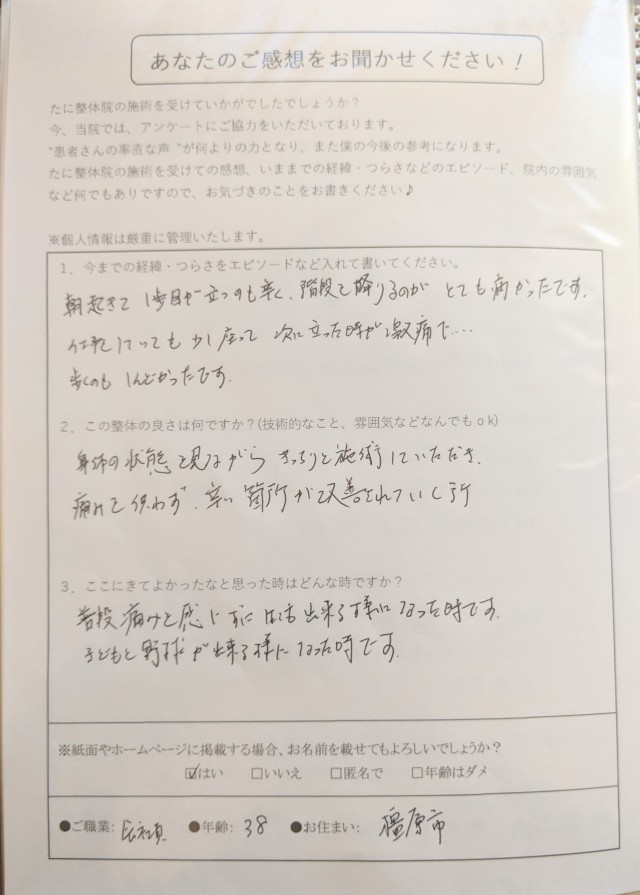 あなたのご感想をお聞かせください！
たに整体院の施術を受けていかがでしたでしょうか？
今、当院では、アンケートにご協力をいただいております。
"患者さんの率直な声 "が何よりの力となり、また僕の今後の参考になります。
たに整体院の施術を受けての感想、いままでの経緯・つらさなどのエピソード、院内の雰囲気
など何でもありですので、お気づきのことをお書きください♪
※個人情報は厳重に管理いたします。
1．今までの経緯・つらさをエピソードなど入れて書いてください。
朝起きて 1歩目が立つのも辛く、階段を降りるのが とても痛かったです。
仕事していても 少し座って 次に立った時が激痛で…
歩くのも しんどかったです。
2．この整体の良さは何ですか？(技術的なこと、雰囲気などなんでもｏｋ)
身体の状態を見ながら きっちりと施術していただき、
痛みを伴わず、辛い箇所が改善されていく所
3．ここにきてよかったなと思った時はどんな時ですか？
普段痛みを感じずに 出来る様になった時です。
子どもと野球が出来る様になった時です。
※紙面やホームページに掲載する場合、お名前を載せてもよろしいでしょうか？
☑はい □いいえ □匿名で □年齢はダメ
●ご職業: 会社員 ●年齢: 38 ●お住まい: 橿原市